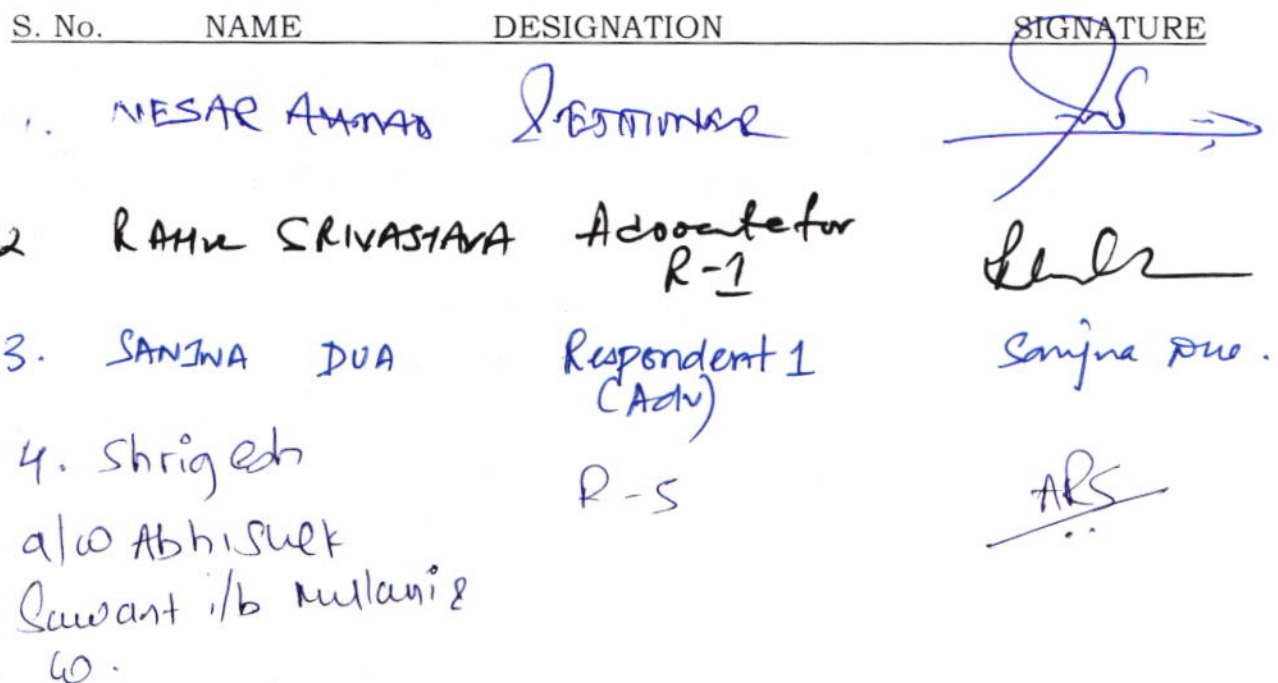 S. No. NAME DESIGNATION SIGNATURE
1. NESAR AHMAD PETITIONER
2 RAHUL SRIVASTAVA Advocate for
R-1
3. SANJNA DUA Respondent 1 Sanjna Dua.
(Adv)
4. Shrigesh R-5 ARS
a/w Abhishek
Sawant i/b Mullani &
Co.